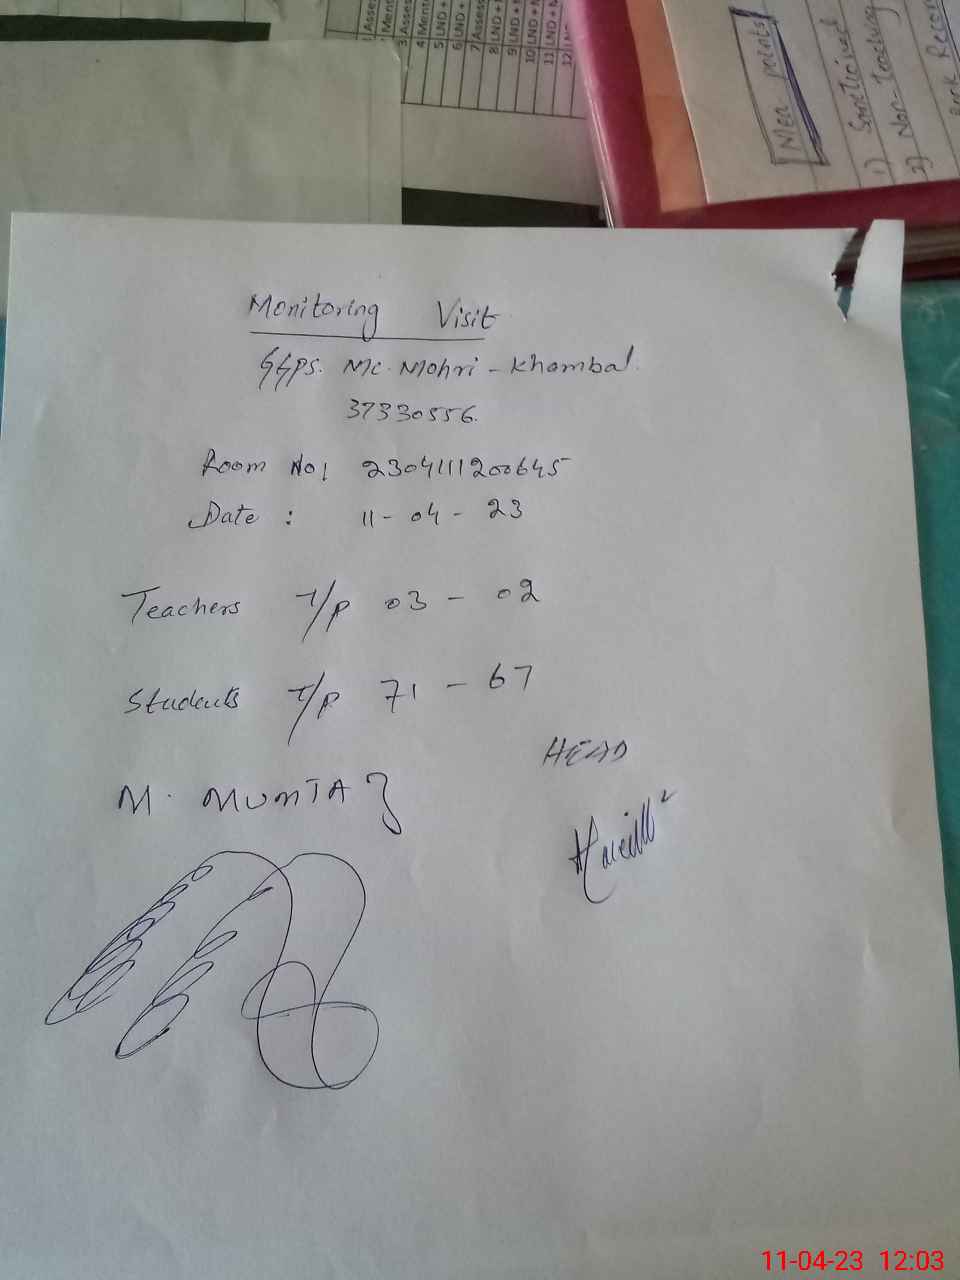 1 Assess
2 Mens
3 Assess
4 Mento
5 LND +
6 LND +
7 Assess
8 LND + N
9 LND + M
10 LND + M
11 LND + M
12
Men points
1) Sanctioned
2) Non-teaching
Monitoring Visit
GGPS. MC. Mohri - Khambal.
37330556.
Room No: 2304111200645
Date : 11-04-23
Teachers T/P 03 - 02
Students T/P 71 - 67
HEAD
M. MUMTAZ
11-04-23 12:03